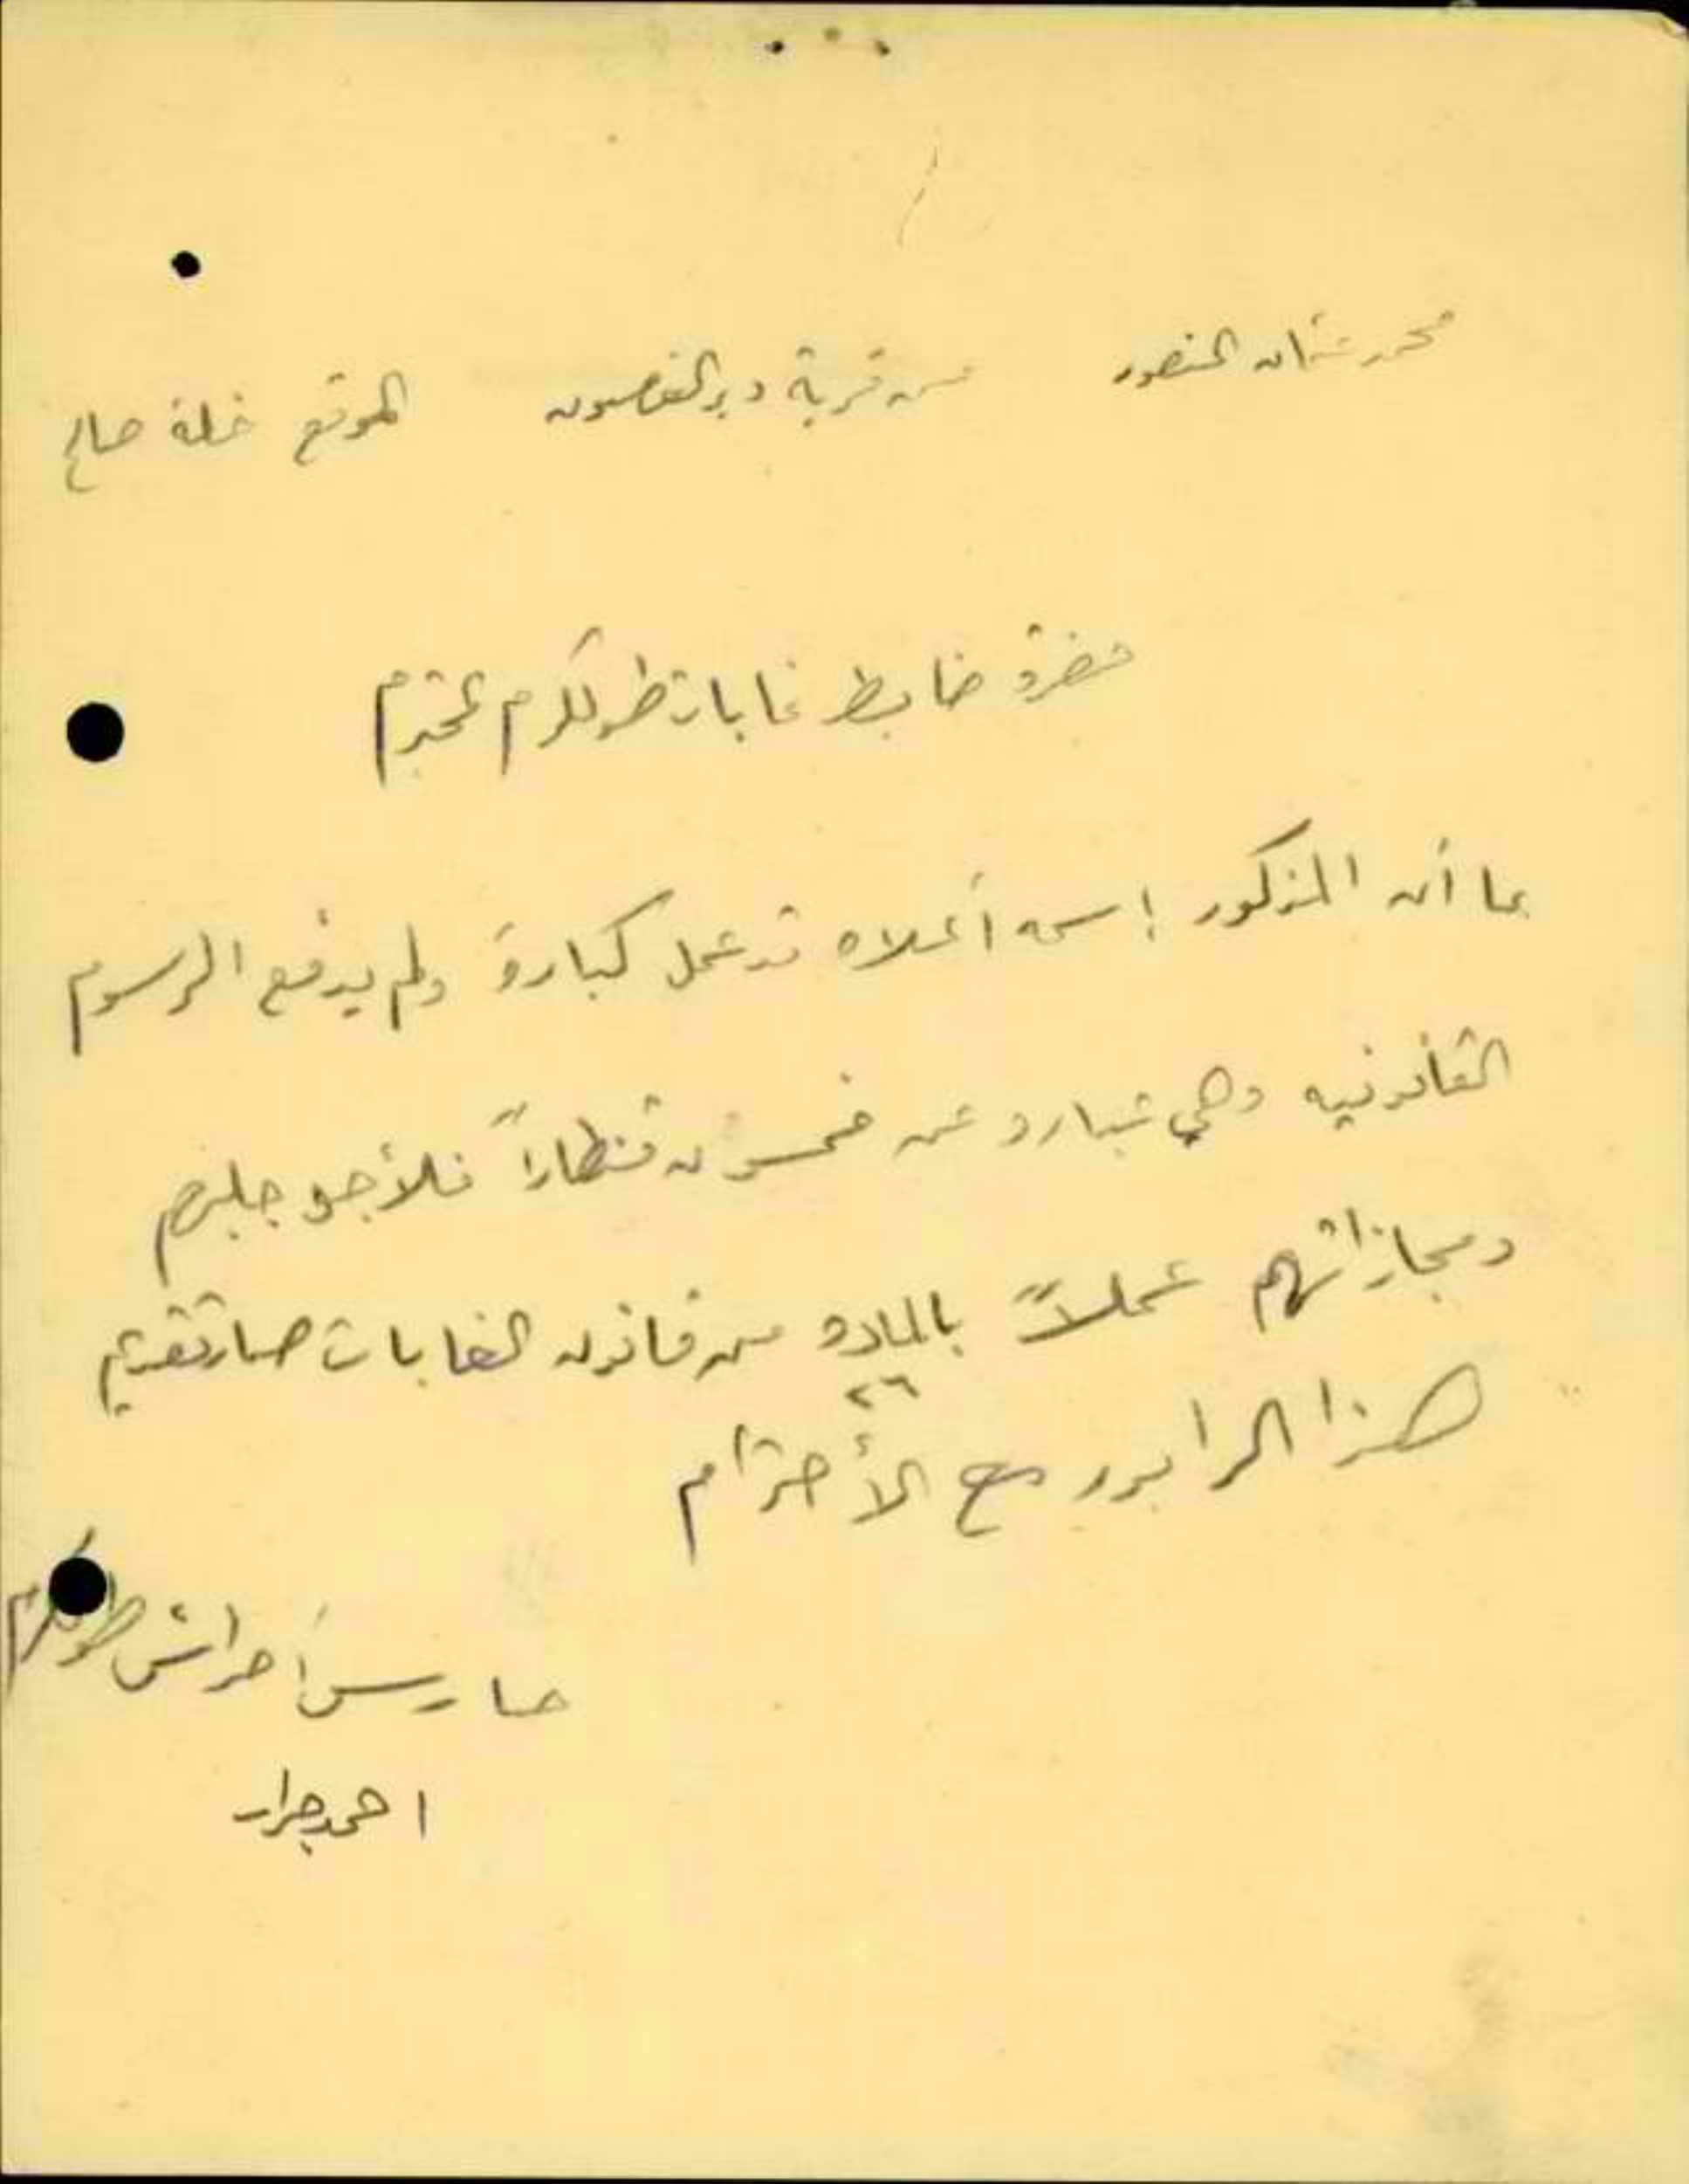 محمد عثمان المنصور من قرية دير الغصون الموقع خلة صالح
حضرة ضابط غابات طولكرم المحترم
بما أن المذكور إسمه أعلاه قد عمل كبارة ولم يدفع الرسوم
القانونيه وهي عبارة عن خمسون قنطاراً فلأجل جلبهم
ومجازاتهم عملاً بالمادة من قانون الغابات صار تقديم
٢٦
هذا الرابور مع الأحترام
حارس أحراش طولكرم
احمد جرار